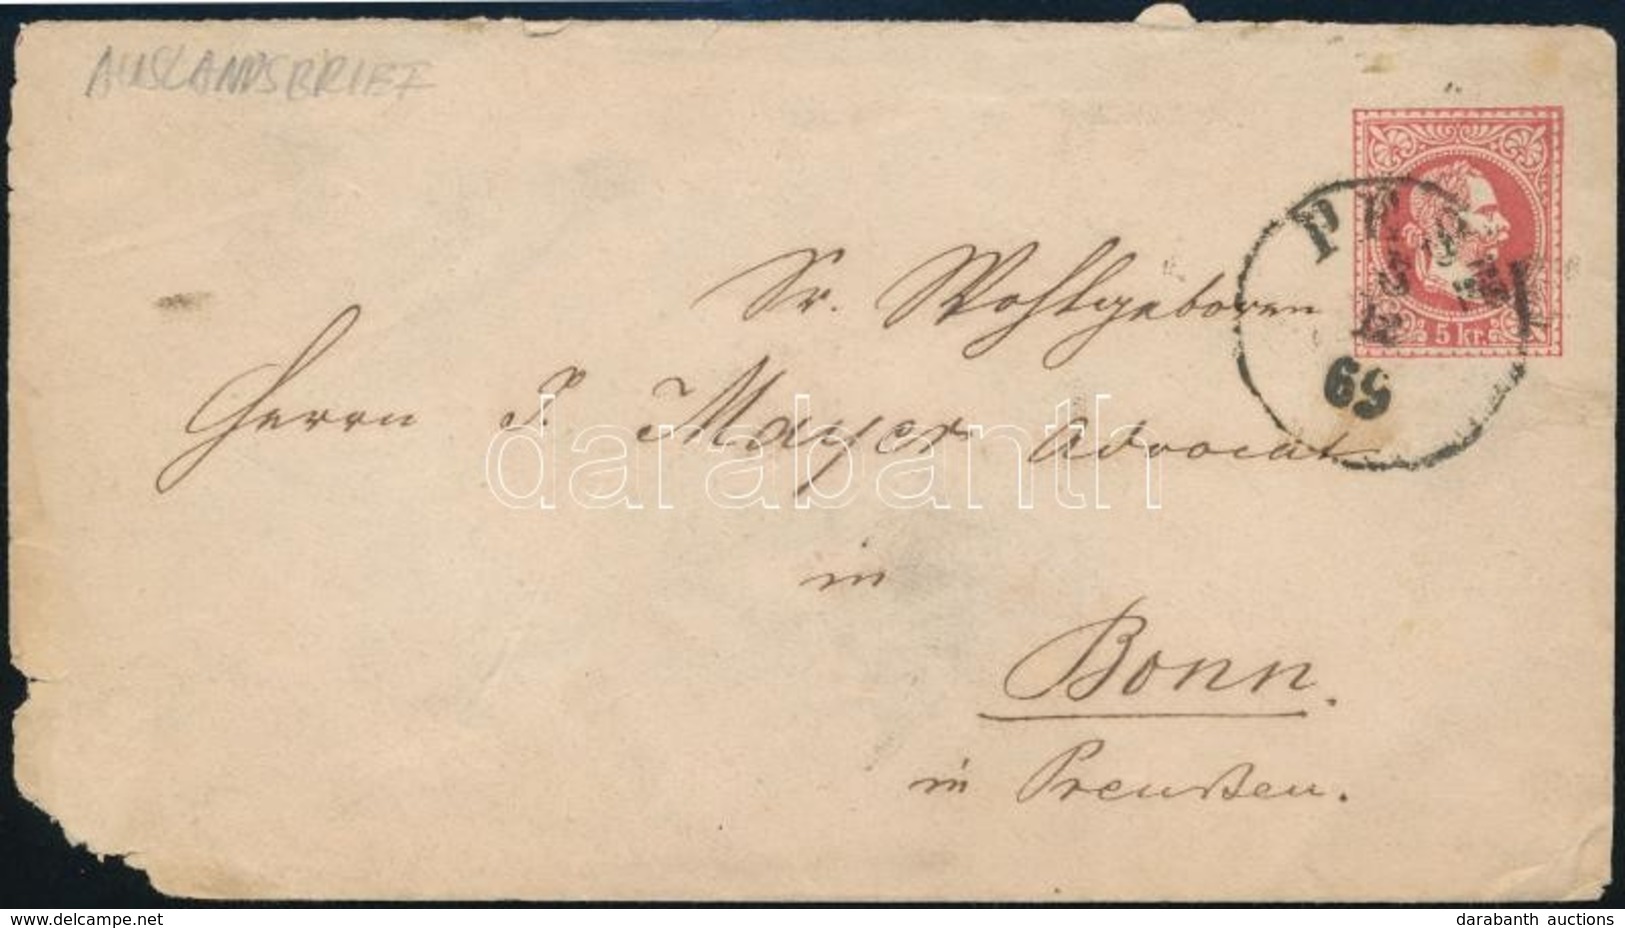 AUSLANDSBRIEF
5 kr.
69
Sr. Wohlgeboren
Herrn P. Mayer Advocat
in
Bonn.
in Preußen.
darabanth
www.delcampe.net
darabanth auctions